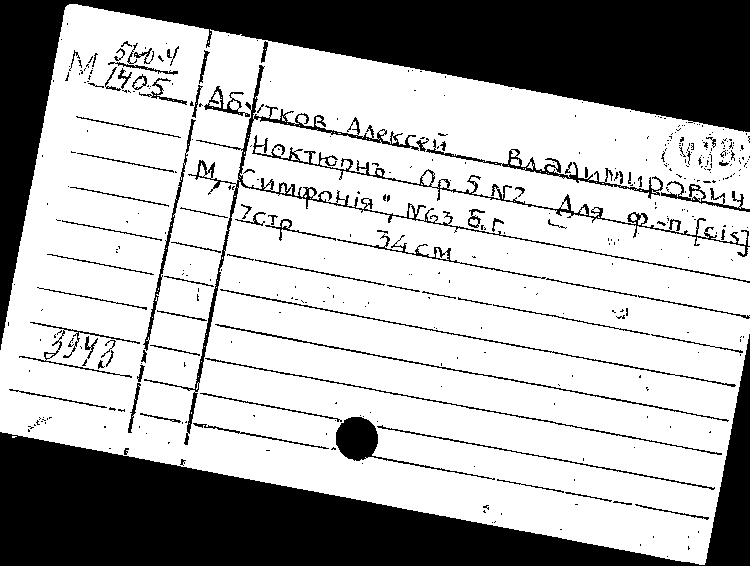 М 560-4
1405
Абутков Алексей Владимирович
Ноктюрнъ. Op. 5 N2. Для ф.-п. [cis]
М, "Симфонія", N63, б.г.
7стр 34 см
3943